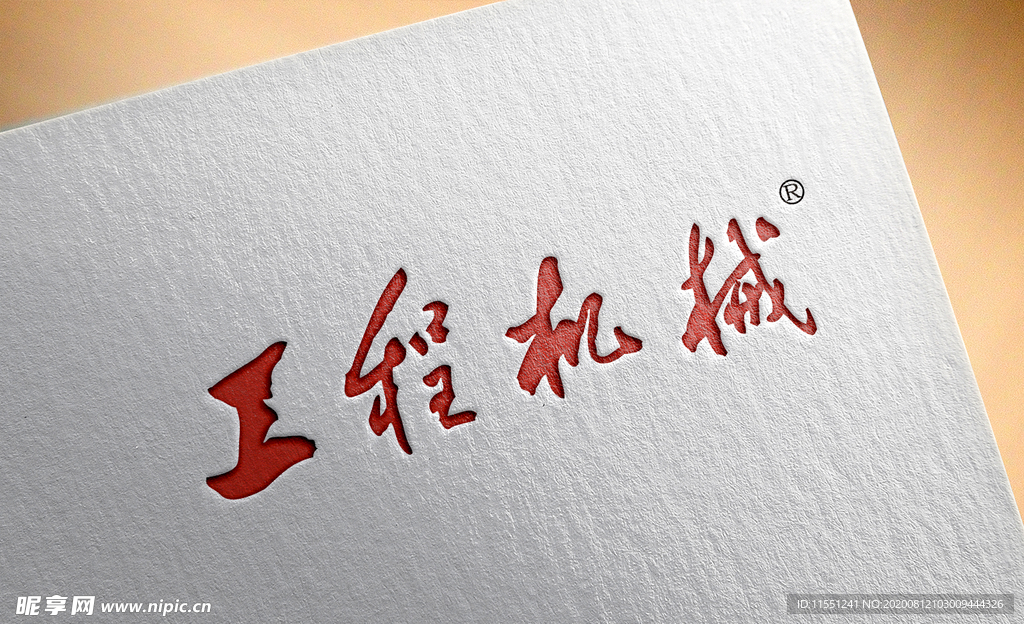 工程机械®
昵享网 www.nipic.cn
ID:11551241 NO:20200812103009444326